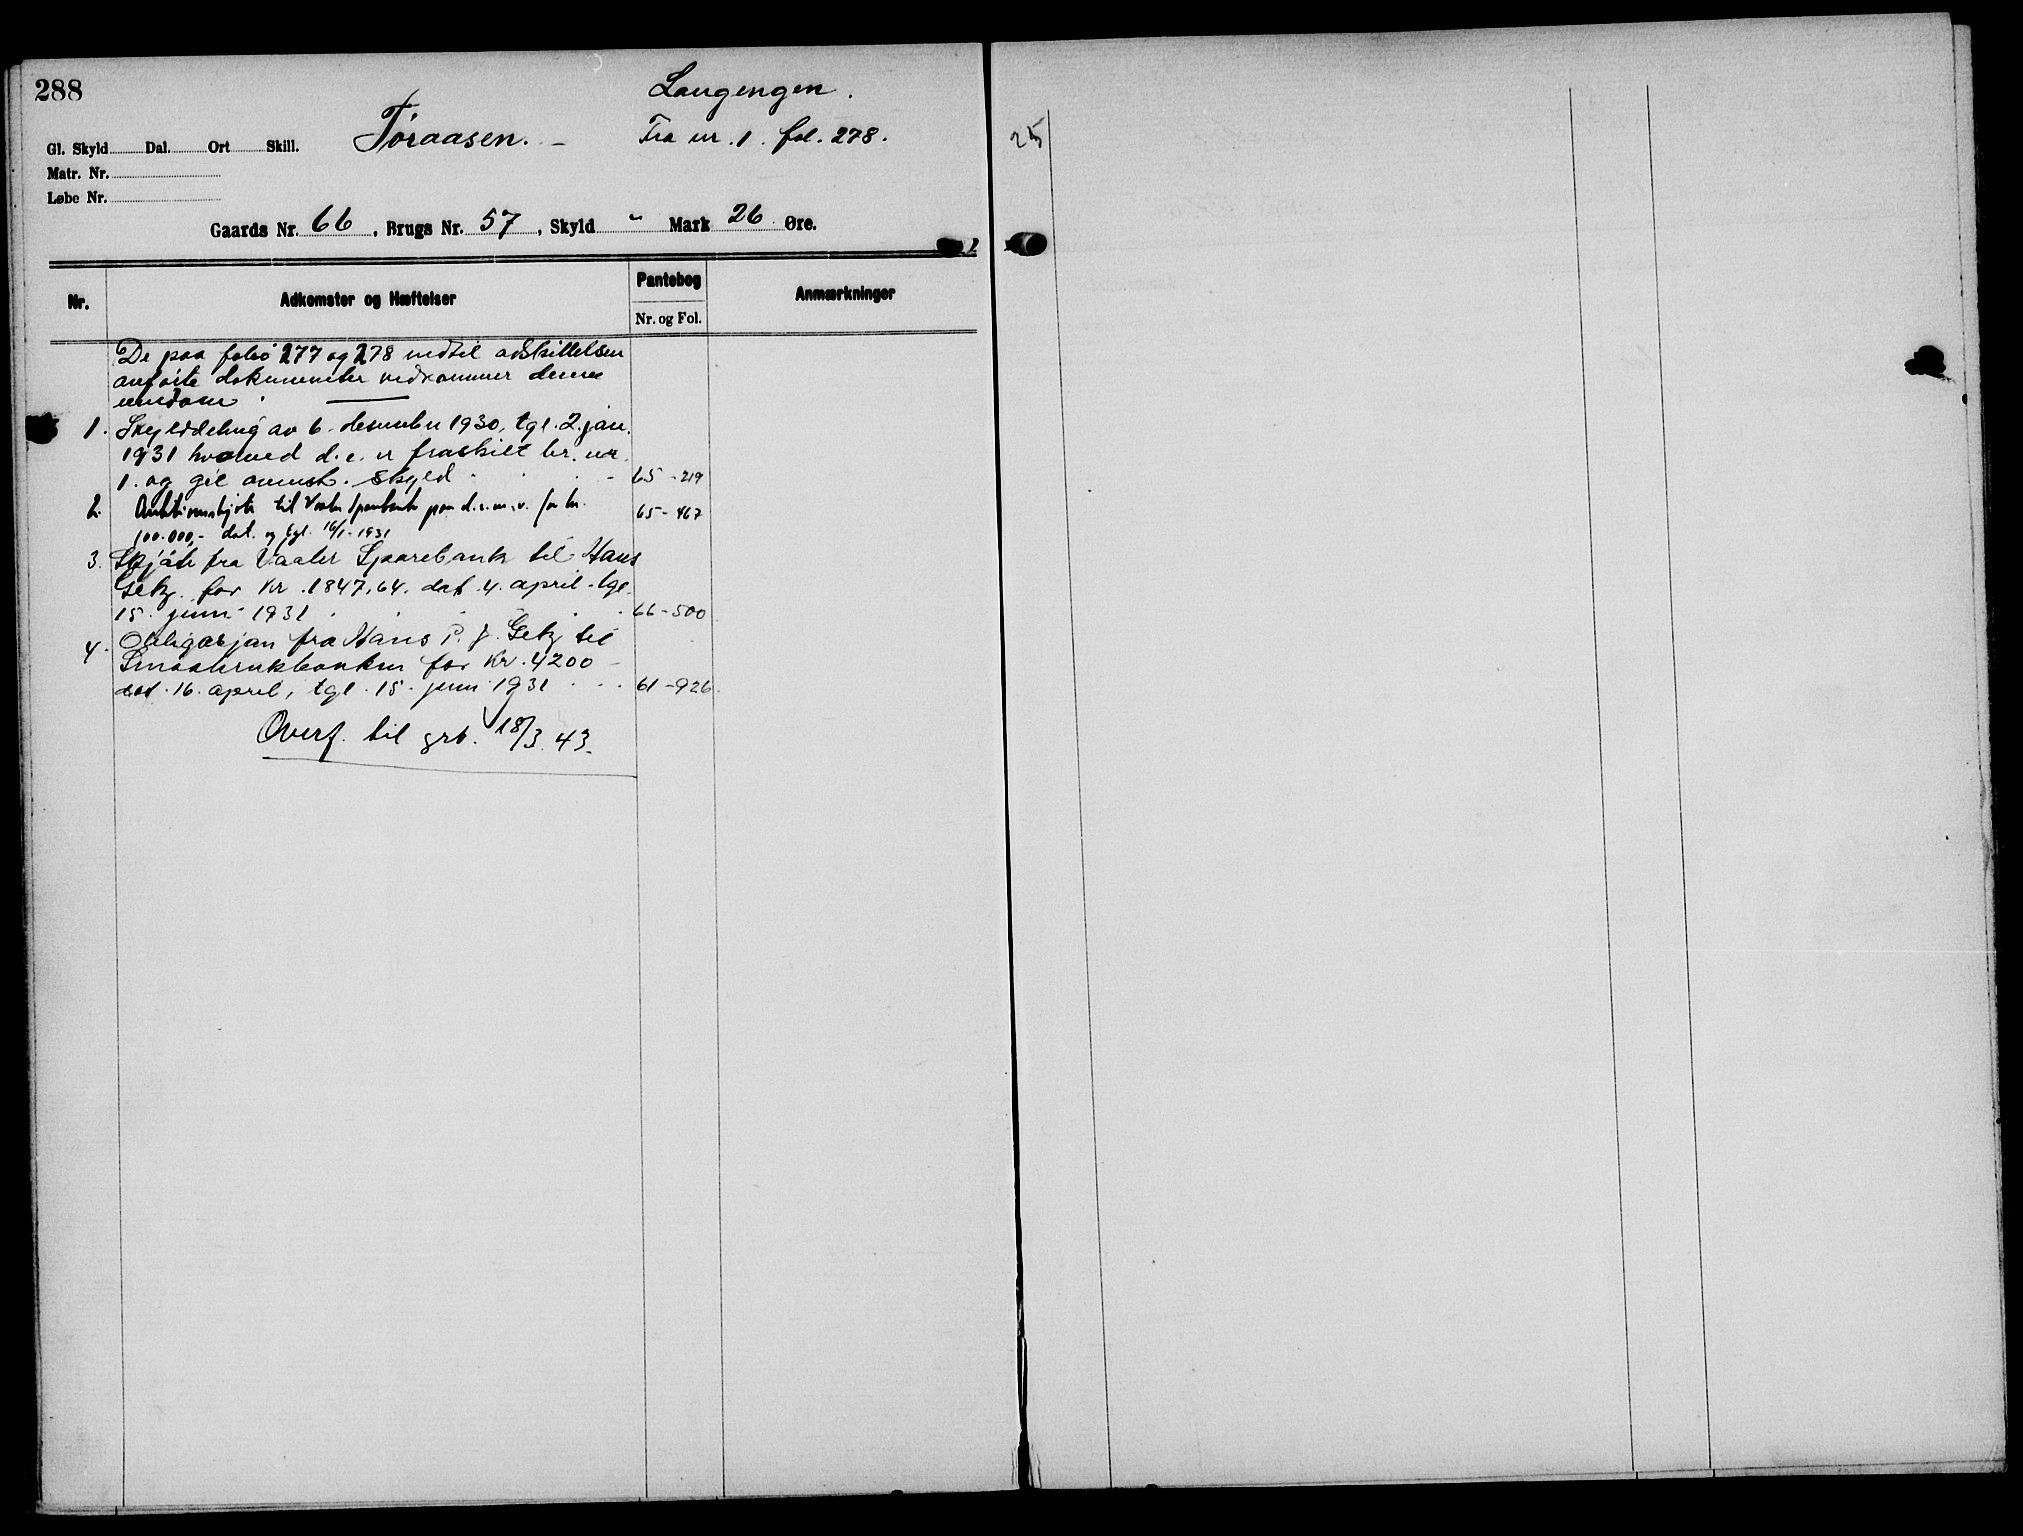 288
Langengen.
Gl. Skyld Dal. Ort Skill. Føraasen. – Fra nr. 1. fol. 278.
Matr. Nr.
Løbe Nr.
Gaards Nr. 66, Brugs Nr. 57, Skyld " Mark 26 Øre.
Nr. Adkomster og Hæftelser Pantebog Anmærkninger
Nr. og Fol.
De paa folio 277 og 278 indtil adskillelsen
anførte dokumenter vedkommer denne
eiendom.
1. Skylddeling av 6. desember 1930, tgl. 2. jan.
1931 hvorved d. e. er fraskilt br. nr.
1. og git anmst. skyld 65 - 219
2. Auktionsskjøte til Vaaler Sparebank paa d. e. m. v. for kr.
100.000,- dat. og tgl. 16/1-1931 65 - 467
3. Skjøte fra Vaaler Sparebank til Hans
for Kr. 1847,64. dat. 4. april - tgl.
15. juni 1931 66 - 500
4. Obligasjon fra Hans P. J. til
Smaabrukbanken for Kr. 4200 –
dat. 16. april, tgl. 15. juni 1931 61 - 926
Overf. til grb. 18/3.43.
25